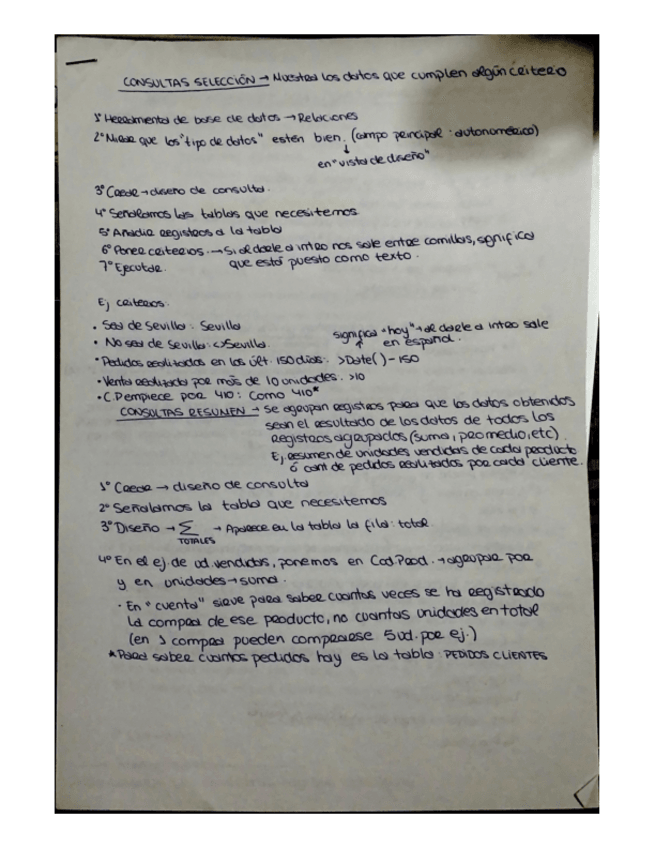 CONSULTAS SELECCIÓN → Muestra los datos que cumplen algún criterio
1º Herramienta de base de datos → Relaciones
2º Mirar que los "tipo de datos" estén bien. (campo principal: autonumérico)
en "vista de diseño"
3º Crear → diseño de consulta.
4º Señalamos las tablas que necesitemos
5º Añadir registros a la tabla
6º Poner criterios. → Si al darle a intro nos sale entre comillas, significa
que está puesto como texto.
7º Ejecutar.
Ej criterios:
• Sea de Sevilla: Sevilla
• No sea de Sevilla: <>Sevilla.
significa "hoy" → al darle a intro sale
en español.
• Pedidos realizados en los últ. 150 días: >Date()-150
• Venta realizada por más de 10 unidades. >10
• C.P empiece por 410: como 410*
CONSULTAS RESUMEN → Se agrupan registros para que los datos obtenidos
sean el resultado de los datos de todos los
registros agrupados (suma, promedio, etc)
Ej resumen de unidades vendidas de cada producto
ó cant de pedidos realizados por cada cliente.
1º Crear → diseño de consulta
2º Señalamos la tabla que necesitemos
3º Diseño → Σ → Aparece en la tabla la fila: total
TOTALES
4º En el ej. de ud. vendidas, ponemos en Cod.Prod. → agrupar por
y en unidades → suma.
• En "cuenta" sirve para saber cuantas veces se ha registrado
la compra de ese producto, no cuantas unidades en total
(en 1 compra pueden comprarse 5 ud. por ej.)
* Para saber cuantos pedidos hay es la tabla: PEDIDOS CLIENTES